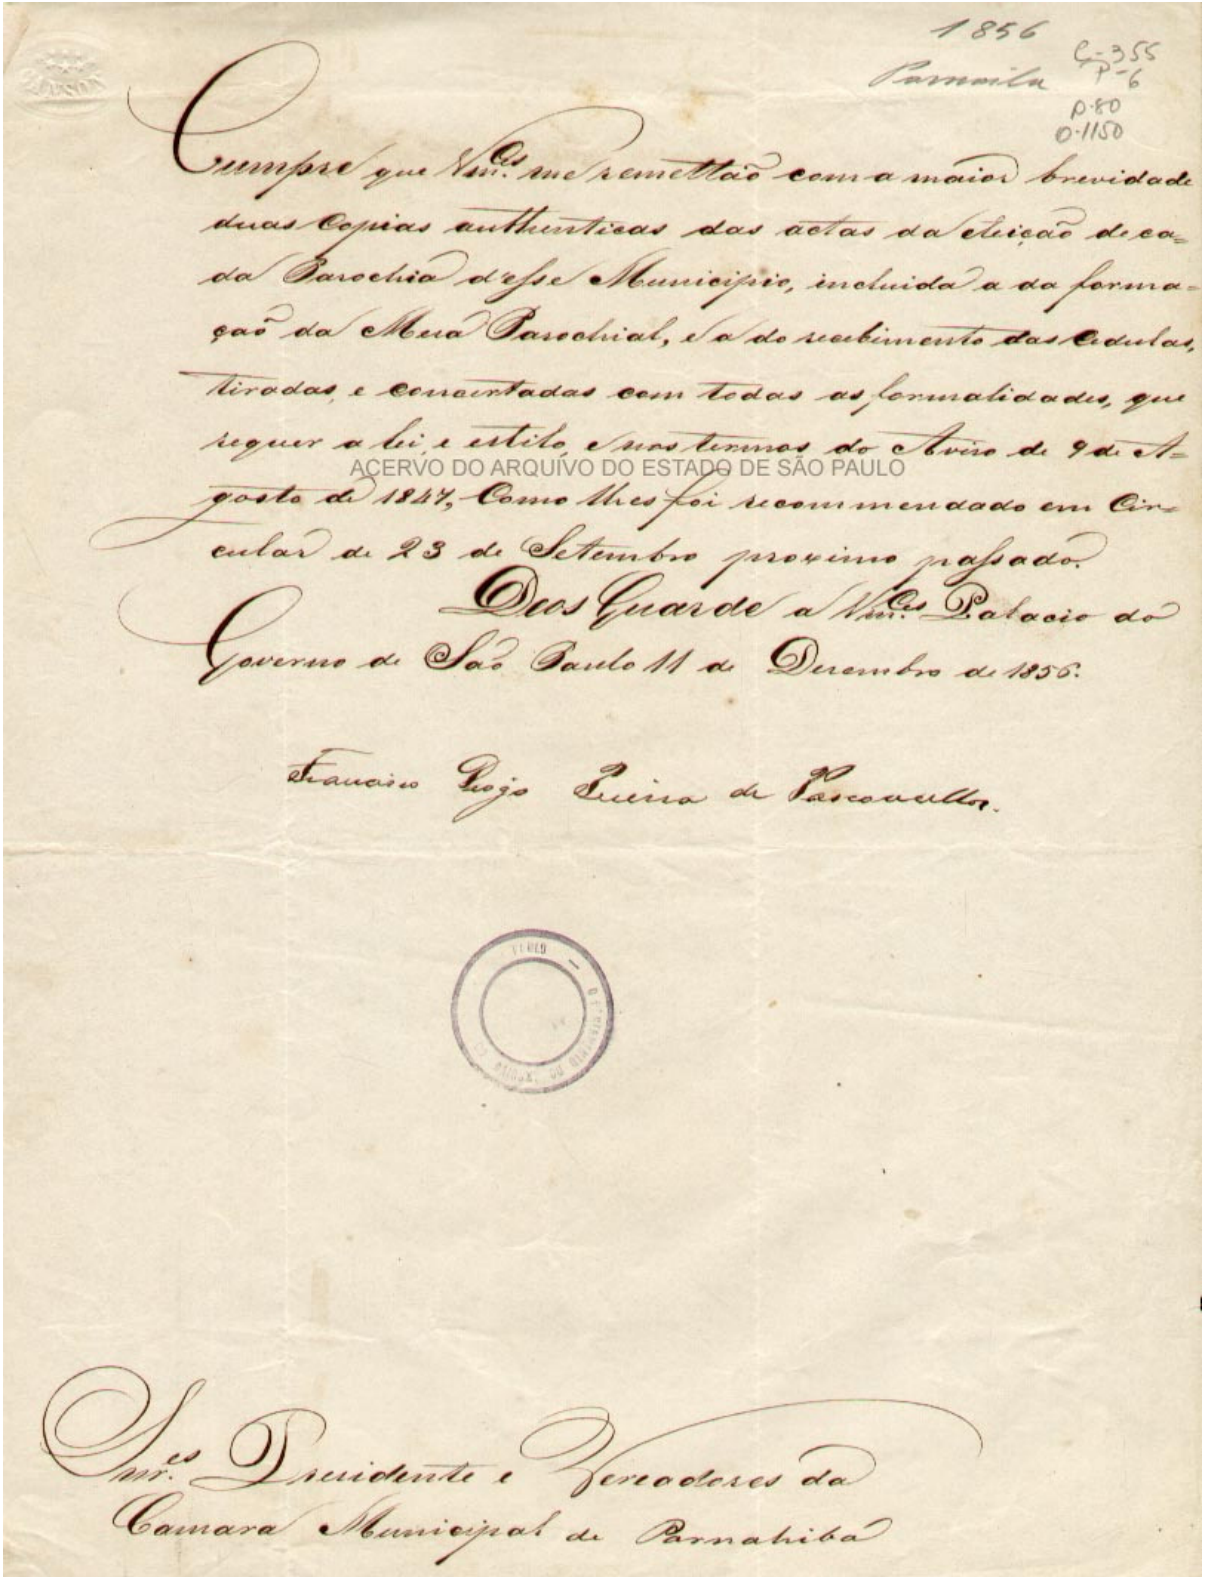 1856
Parnaiba
C-355
P-6
p.80
O.1150
Cumpre que Vm.ces me remettaõ com a maior brevidade
duas Copias authenticas das actas da eleiçaõ de ca=
da Parochia d'esse Municipio, incluida a da forma=
çaõ da Mesa Parochial, e a do recebimento das Cedulas,
tiradas, e concertadas com todas as formalidades, que
requer a lei, e estilo, e nos termos do Aviso de 9 de A=
ACERVO DO ARQUIVO DO ESTADO DE SÃO PAULO
gosto de 1847, Como lhes foi recommendado em Cir=
cular de 23 de Setembro proximo passado.
Deos Guarde a Vm.ces Palacio do
Governo de São Paulo 11 de Dezembro de 1856.
Francisco Diogo Pereira de Vasconcellos.
Snr.es Presidente e Vereadores da
Camara Municipal de Parnahiba